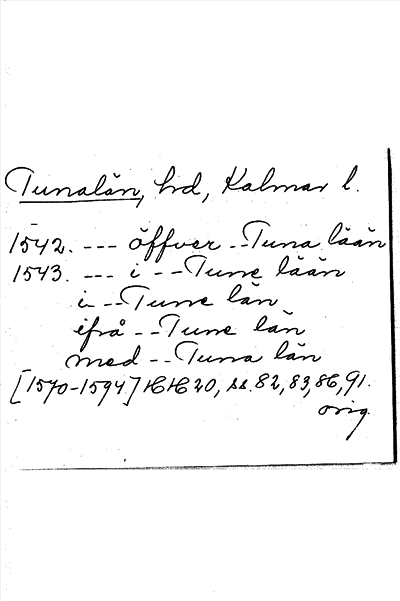 Tunalän, hd, Kalmar l.
1542. --- öffver -- Tuna lään
1543. --- i -- Tune lään
i -- Tune län
ifrå -- Tune län
med -- Tuna län
[1570-1594] HH 20, ss. 82, 83, 86, 91.
orig.